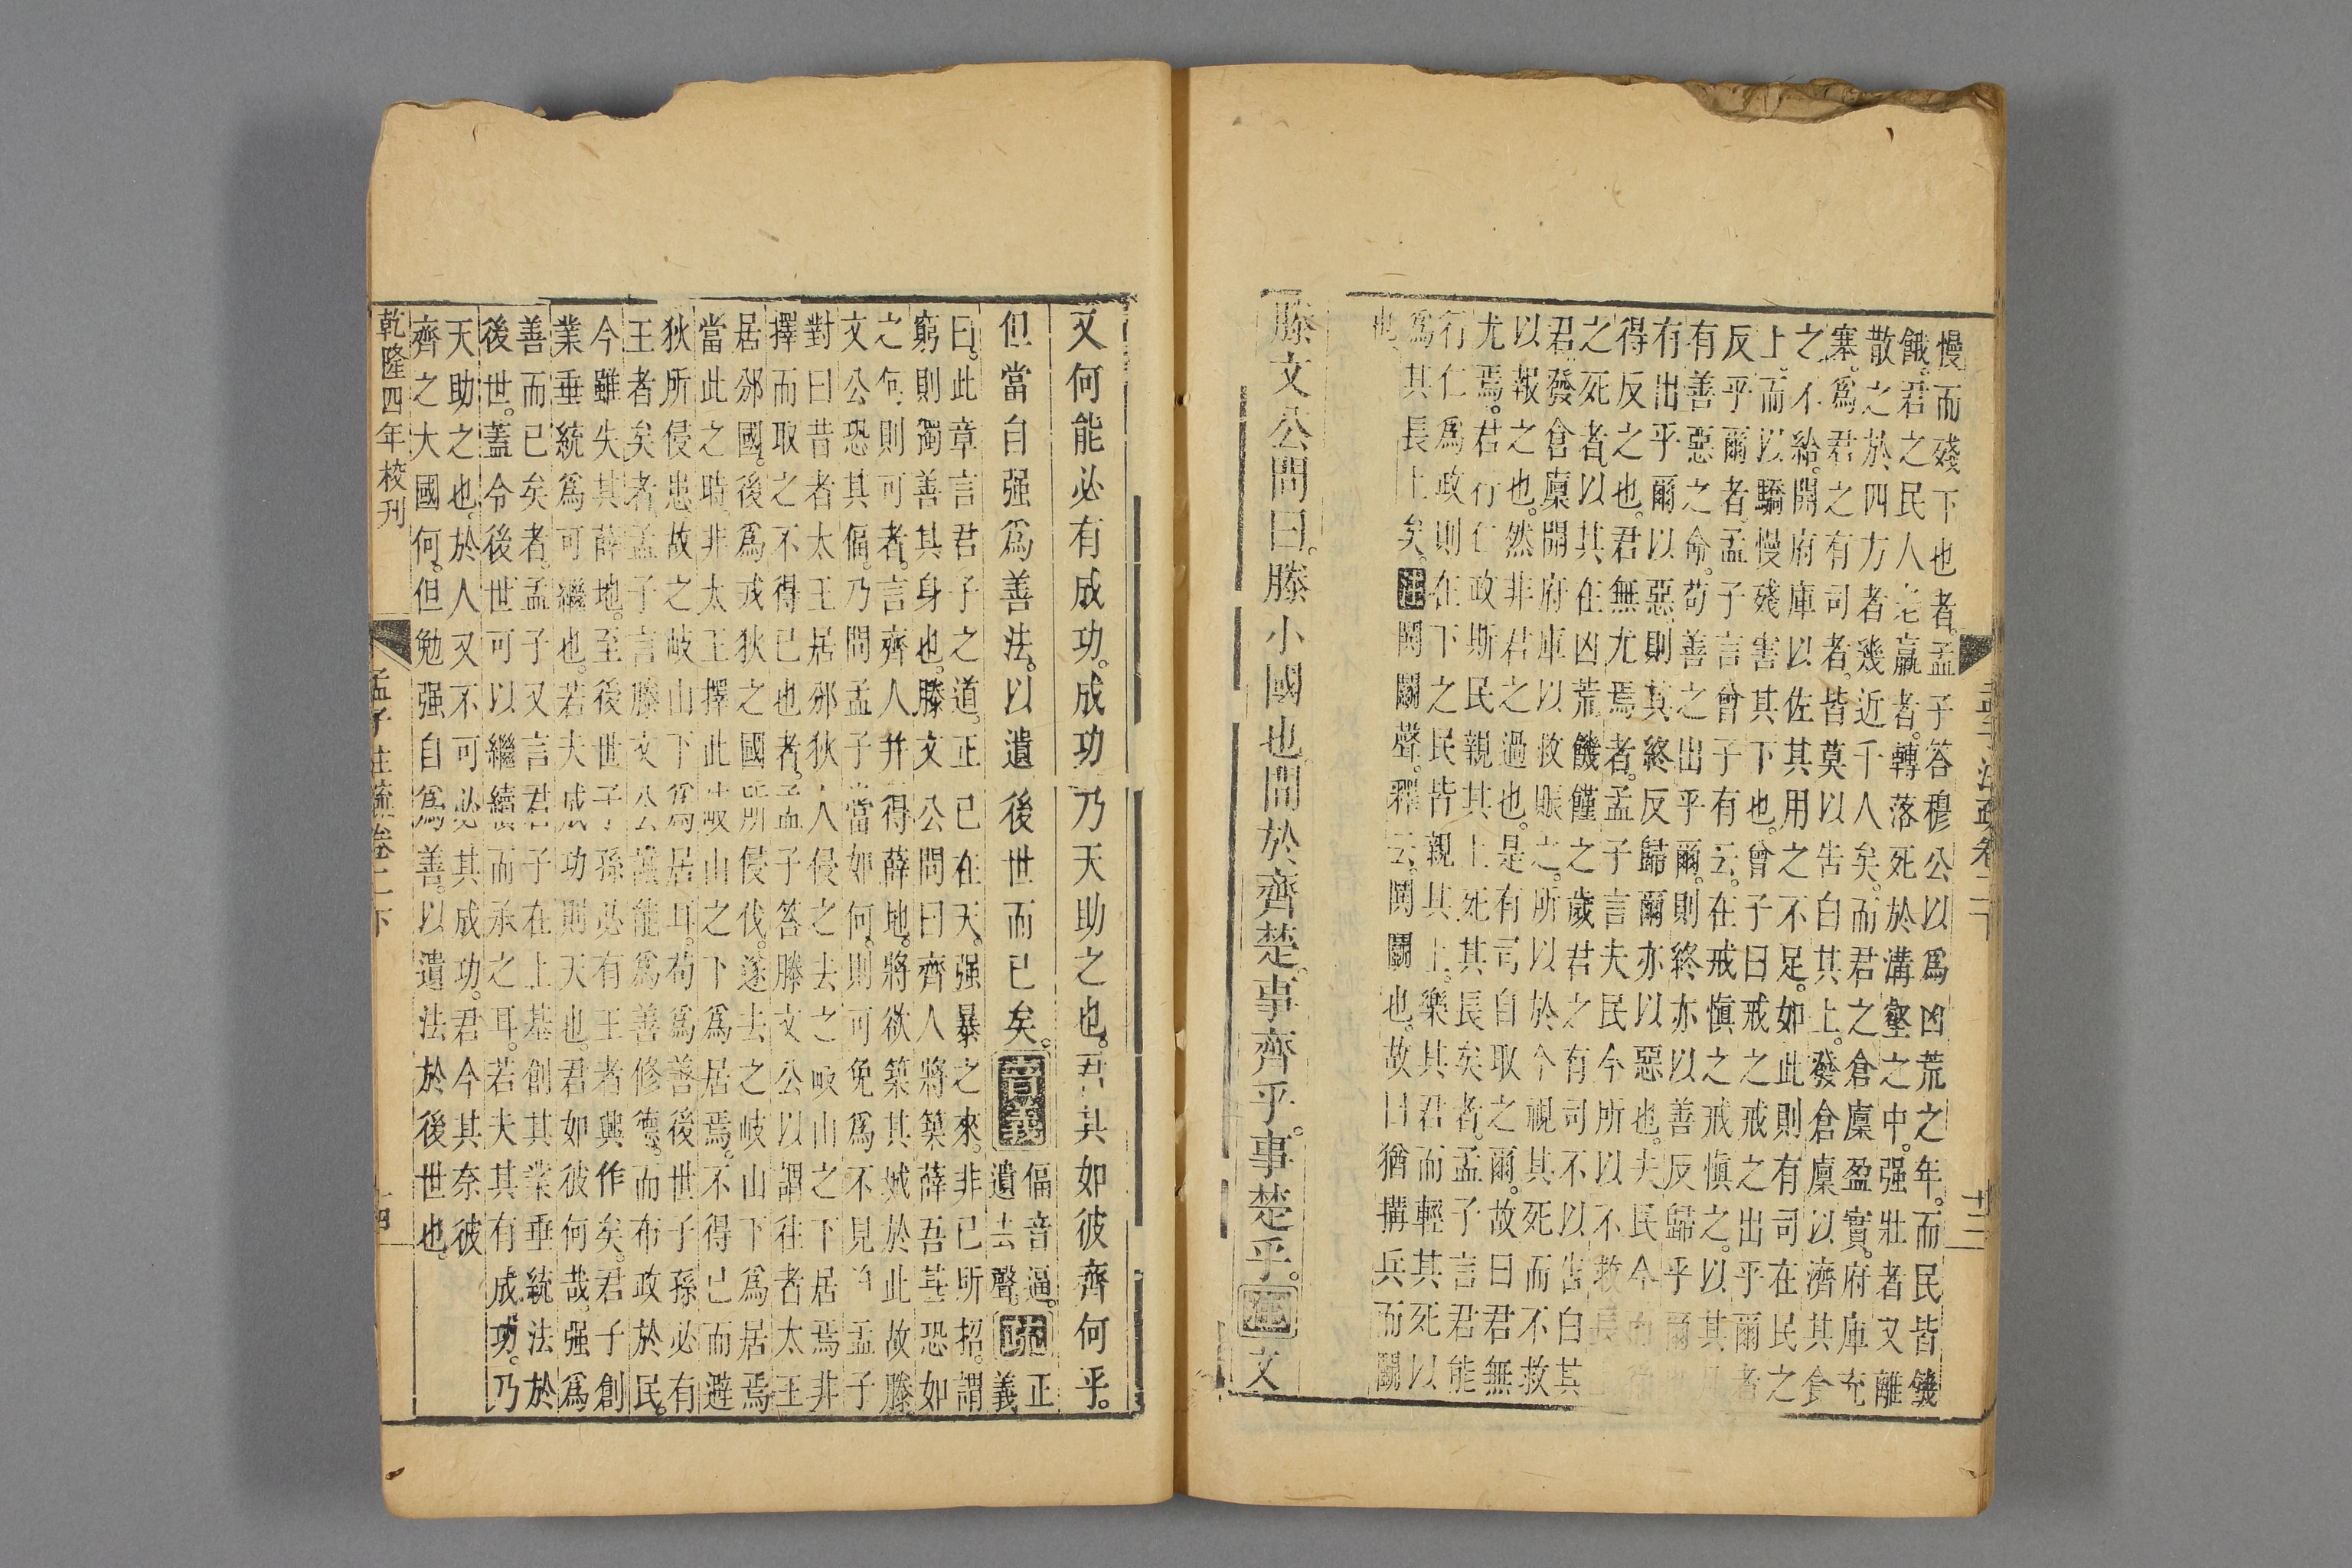 孟子注疏卷二下 十三
慢而殘下也者。孟子答穆公以爲凶荒之年。而民皆饑
餓。君之民人老羸者。轉落死於溝壑之中。强壯者又離
散之於四方者幾近千人矣。而君之倉廩盈實。府庫充
塞。爲君之有司者。皆莫以告白其上。發倉廩以濟其食
之不給。開府庫以佐其用之不足。如此則有司在民之
上。而以驕慢殘害其下也。曾子曰戒之戒之出乎爾者
反乎爾者。孟子言曾子有云。在戒愼之戒愼之。以其
有善惡之命。苟善之出乎爾。則終亦以善反歸乎爾
有出乎爾以惡。則其終反歸爾亦以惡也。夫民今而後
得反之也。君無尤焉者。孟子言夫民今所以不救長
之死者。以其在凶荒饑饉之歲君之有司不以告白其
君。發倉廩開府庫以救賑之。所以於今視其死而不救
以報之也。然非君之過也。是有司自取之爾。故曰君無
尤焉。君行仁政斯民親其上死其長矣者。孟子言君能
行仁爲政則在下之民皆親其上。樂其君而輕其死以
爲其長上矣。注鬩鬭聲。釋云。鬩鬭也。故曰猶搆兵而鬭
也
滕文公問曰。滕小國也。間於齊楚。事齊乎。事楚乎。注文
又何能必有成功。成功乃天助之也。君其如彼齊何乎。
但當自强爲善法。以遺後世而已矣。音義偪音逼。遺去聲。疏正義
曰。此章言君子之道。正已在天。强暴之來。非已所招。謂
窮則獨善其身也。滕文公問曰齊人將築薛吾甚恐如
之何則可者。言齊人并得薛地。將欲築其城於此故滕
文公恐其偪。乃問孟子當如何。則可免爲不見 孟子
對曰昔者太王居邠狄人侵之去之岐山之下居焉非
擇而取之不得已也者。孟子答滕文公以謂往者太王
居邠國。後爲戎狄之國所侵伐。遂去之岐山下爲居焉
當此之時非太王擇此岐山之下爲居焉。不得已而避
狄所侵患故之岐山下爲居耳。苟爲善後世子孫必有
王者矣者孟子言滕文公誰能爲善修德。而布政於民。
今雖失其薛地。至後世子孫必有王者興作矣。君子創
業垂統爲可繼也。若夫成功則天也。君如彼何哉。强爲
善而已矣者。孟子又言君子在上基創其業垂統法於
後世。蓋令後世可以繼續而承之耳。若夫其有成功。乃
天助之也。於人又不可必其成功。君今其奈彼
齊之大國何。但勉强自爲善。以遺法於後世也。
乾隆四年校刊 孟子注疏卷二下 十四